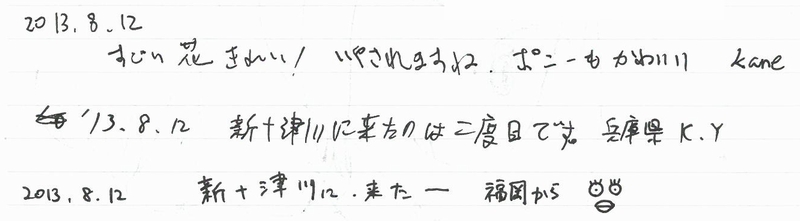 2013.8.12
すごい花きれい！いやされますね．ポニーもかわいい Kane
'13.8.12 新十津川に来たのは二度目です。兵庫県 K.Y
2013.8.12 新十津川に．来たー 福岡から